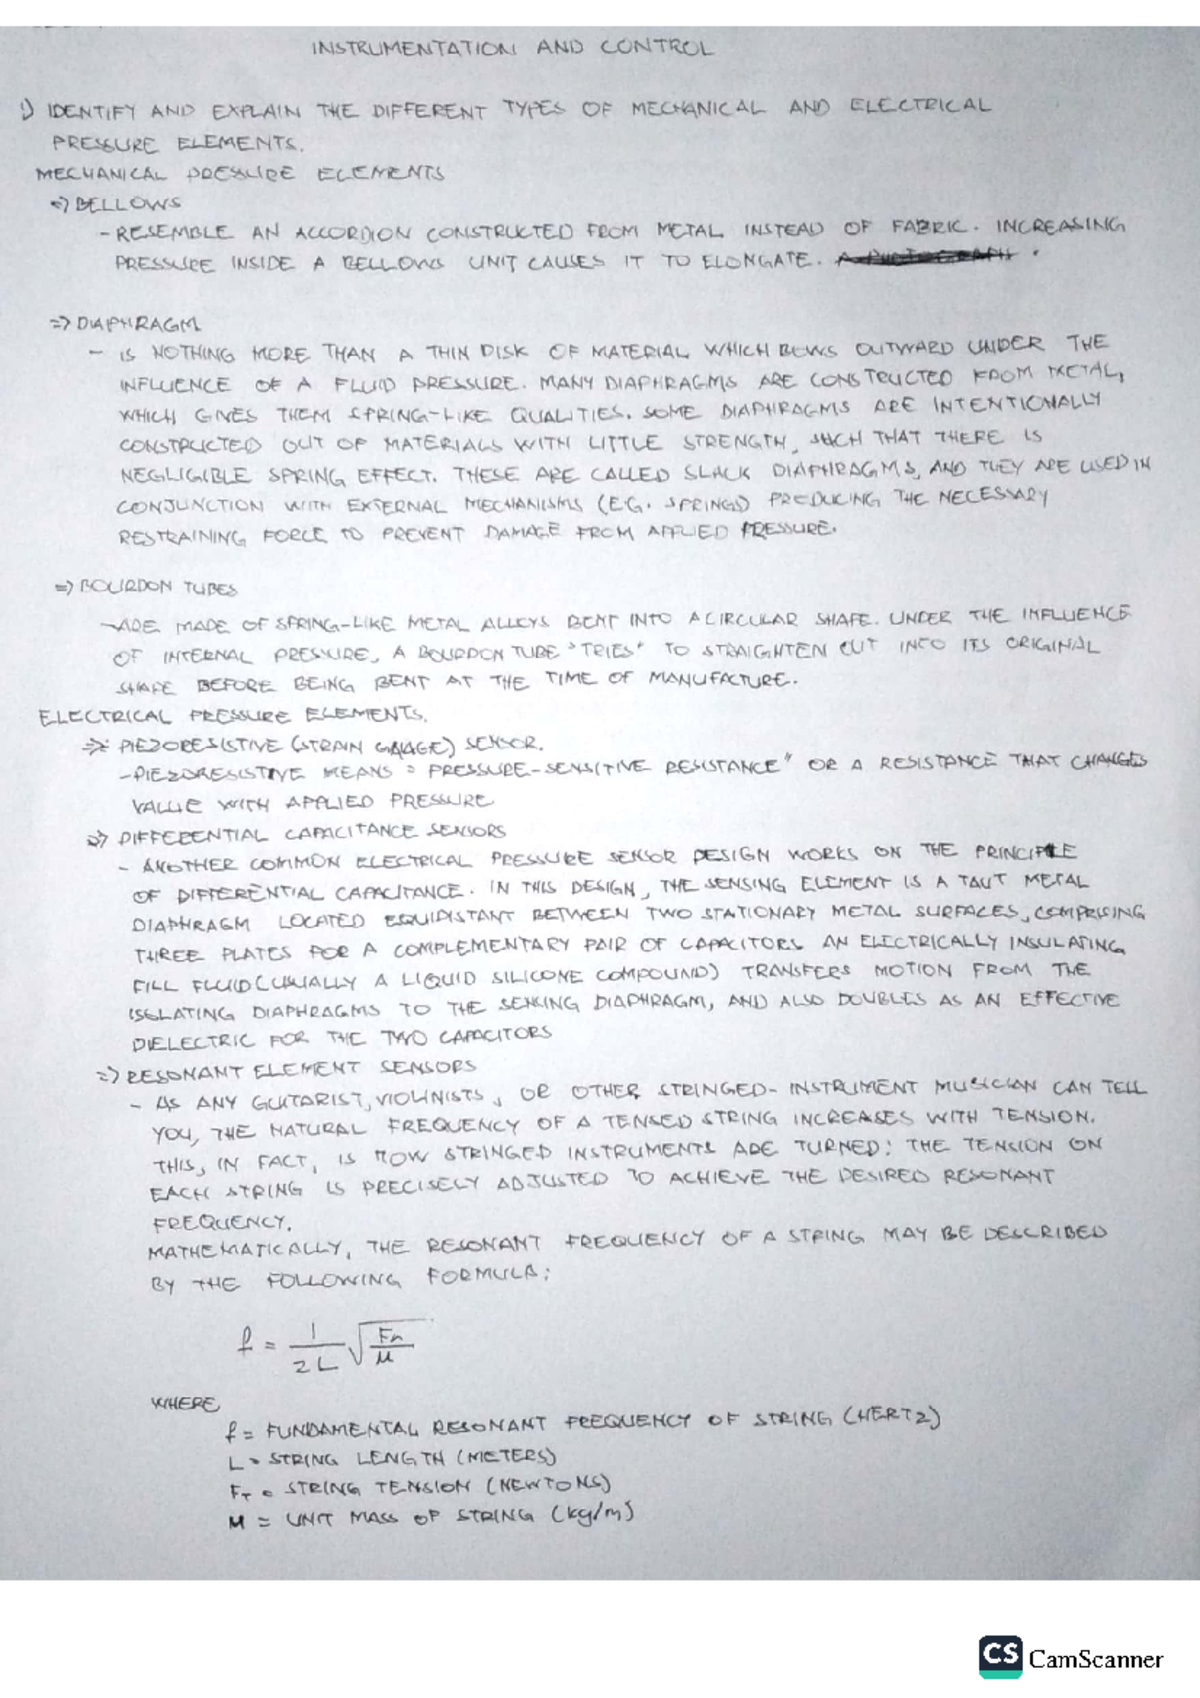 INSTRUMENTATION AND CONTROL
1) IDENTIFY AND EXPLAIN THE DIFFERENT TYPES OF MECHANICAL AND ELECTRICAL
PRESSURE ELEMENTS.
MECHANICAL PRESSURE ELEMENTS
=> BELLOWS
- RESEMBLE AN ACCORDION CONSTRUCTED FROM METAL INSTEAD OF FABRIC. INCREASING
PRESSURE INSIDE A BELLOWS UNIT CAUSES IT TO ELONGATE.
=> DIAPHRAGM
- IS NOTHING MORE THAN A THIN DISK OF MATERIAL WHICH BOWS OUTWARD UNDER THE
INFLUENCE OF A FLUID PRESSURE. MANY DIAPHRAGMS ARE CONSTRUCTED FROM METAL,
WHICH GIVES THEM SPRING-LIKE QUALITIES. SOME DIAPHRAGMS ARE INTENTIONALLY
CONSTRUCTED OUT OF MATERIALS WITH LITTLE STRENGTH, SUCH THAT THERE IS
NEGLIGIBLE SPRING EFFECT. THESE ARE CALLED SLACK DIAPHRAGMS, AND THEY ARE USED IN
CONJUNCTION WITH EXTERNAL MECHANISMS (E.G. SPRINGS) PRODUCING THE NECESSARY
RESTRAINING FORCE TO PREVENT DAMAGE FROM APPLIED PRESSURE.
=> BOURDON TUBES
- ARE MADE OF SPRING-LIKE METAL ALLOYS BENT INTO A CIRCULAR SHAPE. UNDER THE INFLUENCE
OF INTERNAL PRESSURE, A BOURDON TUBE "TRIES" TO STRAIGHTEN OUT INTO ITS ORIGINAL
SHAPE BEFORE BEING BENT AT THE TIME OF MANUFACTURE.
ELECTRICAL PRESSURE ELEMENTS.
=> PIEZORESISTIVE (STRAIN GAUGE) SENSOR.
- PIEZORESISTIVE MEANS "PRESSURE-SENSITIVE RESISTANCE" OR A RESISTANCE THAT CHANGES
VALUE WITH APPLIED PRESSURE
=> DIFFERENTIAL CAPACITANCE SENSORS
- ANOTHER COMMON ELECTRICAL PRESSURE SENSOR DESIGN WORKS ON THE PRINCIPLE
OF DIFFERENTIAL CAPACITANCE. IN THIS DESIGN, THE SENSING ELEMENT IS A TAUT METAL
DIAPHRAGM LOCATED EQUIDISTANT BETWEEN TWO STATIONARY METAL SURFACES, COMPRISING
THREE PLATES FOR A COMPLEMENTARY PAIR OF CAPACITORS AN ELECTRICALLY INSULATING
FILL FLUID (USUALLY A LIQUID SILICONE COMPOUND) TRANSFERS MOTION FROM THE
ISOLATING DIAPHRAGMS TO THE SENSING DIAPHRAGM, AND ALSO DOUBLES AS AN EFFECTIVE
DIELECTRIC FOR THE TWO CAPACITORS
=> RESONANT ELEMENT SENSORS
- AS ANY GUITARIST, VIOLINISTS, OR OTHER STRINGED-INSTRUMENT MUSICIAN CAN TELL
YOU, THE NATURAL FREQUENCY OF A TENSED STRING INCREASES WITH TENSION.
THIS, IN FACT, IS HOW STRINGED INSTRUMENTS ARE TURNED: THE TENSION ON
EACH STRING IS PRECISELY ADJUSTED TO ACHIEVE THE DESIRED RESONANT
FREQUENCY.
MATHEMATICALLY, THE RESONANT FREQUENCY OF A STRING MAY BE DESCRIBED
BY THE FOLLOWING FORMULA:
f = 1/2L √(Fn/M)
WHERE
f = FUNDAMENTAL RESONANT FREQUENCY OF STRING (HERTZ)
L = STRING LENGTH (METERS)
FT = STRING TENSION (NEWTONS)
M = UNIT MASS OF STRING (kg/m)
CS CamScanner